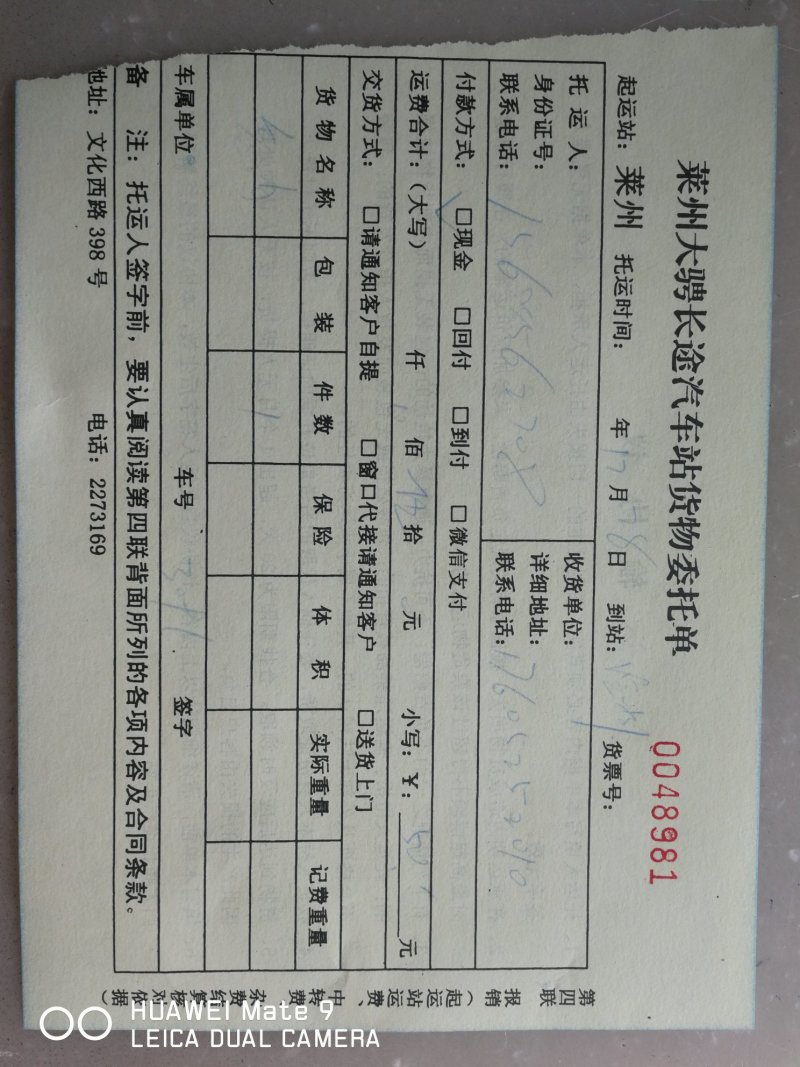 莱州大骋长途汽车站货物委托单
0048981
起运站：莱州 托运时间： 年 月 8 日 到站： 货票号：
托运人：
身份证号：
联系电话：
收货单位：
详细地址：
联系电话：
付款方式：□现金 □回付 □到付 □微信支付
运费合计：（大写） 仟 佰 拾 元 小写：¥：50 元
交货方式：□请通知客户自提 □窗口代接请通知客户 □送货上门
货物名称 包装 件数 保险 体积 实际重量 记费重量
1
车属单位 车号 签字
备 注：托运人签字前，要认真阅读第四联背面所列的各项内容及合同条款。
地址：文化西路398号 电话：2273169
第四联 报销（起运站运费、中转费、杂费结算核对依据）
HUAWEI Mate 9
LEICA DUAL CAMERA